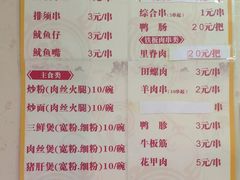 排须串 3元/串
鱿鱼仔 3元/串
鱿鱼嘴 3元/串
主食类
炒粉(肉丝火腿)10/碗
炒面(肉丝火腿)10/碗
三鲜煲(宽粉.细粉)10/碗
肉丝煲(宽粉.细粉)10/碗
猪肝煲(宽粉.细粉)10/碗
综合串 1元/串
鸭肠 20元/把
铁板肉串类
里脊肉 20元/把
田螺肉 3元/串
羊肉串 2元/串
鸭胗 3元/串
牛板筋 3元/串
花甲肉 5元/串